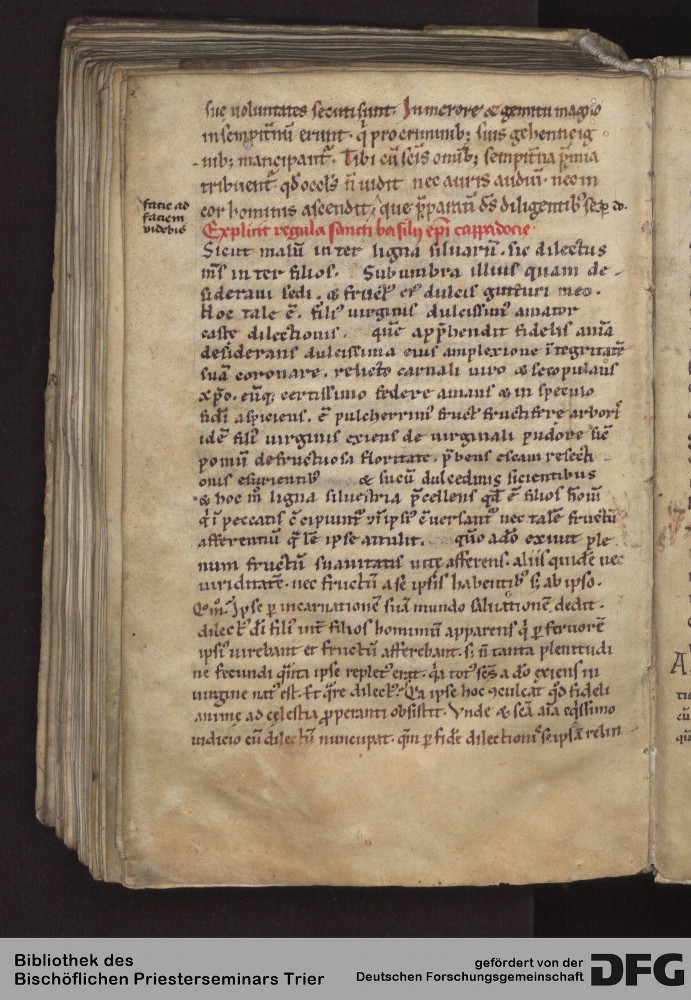 sue voluntates secuti sunt. In merore & gemitu magno
in sempit̄nū erunt. q̄ pro criminib; suis gehenne ig
nib; mancipant᷑. Tibi cū sc̄is om̄ib; sempit̄na p̄mia
tribuent᷑ qđ ocul᷑s n̄ vidit nec auris audiuit nec in
cor hominis ascendit, que p̄parauit d̄s diligentib᷑ se
facie ad
faciem
videbis
Explicit regula sancti basilij ep̄i cappadocie.
Sicut malū inter ligna siluarū. sic dilectus
m̄s inter filios. Sub umbra illius quam de-
sideraui sedi. & fruct᷑ ei᷑ dulcis gutturi meo.
Hoc tale ē. fili᷑ virginis dulcissim᷑ amator
caste dilectionis. quē app̄hendit fidelis aīa
desiderans dulcissima eius amplexione ītegritatē
suā coronare. relicto carnali viro & se copulans
xp̄o. euq; certissimo federe amans & in speculo
fidei aspiciens. ē pulcherrim᷑ fruct᷑ fructifere arbor᷑
idē fili᷑ virginis exiens de virginali pudore sic̄
pomū de fructuosa floritate. p̄bens escam refecti
onis esurientib᷑ & sucū dulcedinis sicientibus
& hoc m̊ ligna silvestria p̄cellens qđ ē filios hom̄
q̇ i peccatis c̄cipiunt᷑ c̄versant᷑ nec talē fructū
afferentiū q̄lē ipse attulit. quō a dō exiuit ple
num fructū suauitatis vite afferens. aliis quidē nec
viriditatē. nec fructū a se ipsis habentib᷑ s; ab ipso.
Q̊m̊. Ipse p incarnationē suā mundo saluationē dedit.
dilect᷑ d̄i fili᷑ int̄ filios hominum apparens q̇ p feruorē
ipsi᷑ virebant et fructū afferebant. s; n̄ tanta plenitudi
ne fecundi q̄nta ipse replet᷑ erat. q̇a tot᷑ sc̄s a dō exiens in
virgine nat᷑ est. Et q̄re dilect᷑? Q̇a ipse hoc qđ fideli
anime ad celestia pperanti obsistit. Unde & sc̄a aīa eq̇ssimo
iudicio eū dilectū nuncupat. q̄m p fidē dilectionis se ipsā relin
Bibliothek des
Bischöflichen Priesterseminars Trier
gefördert von der
Deutschen Forschungsgemeinschaft
DFG